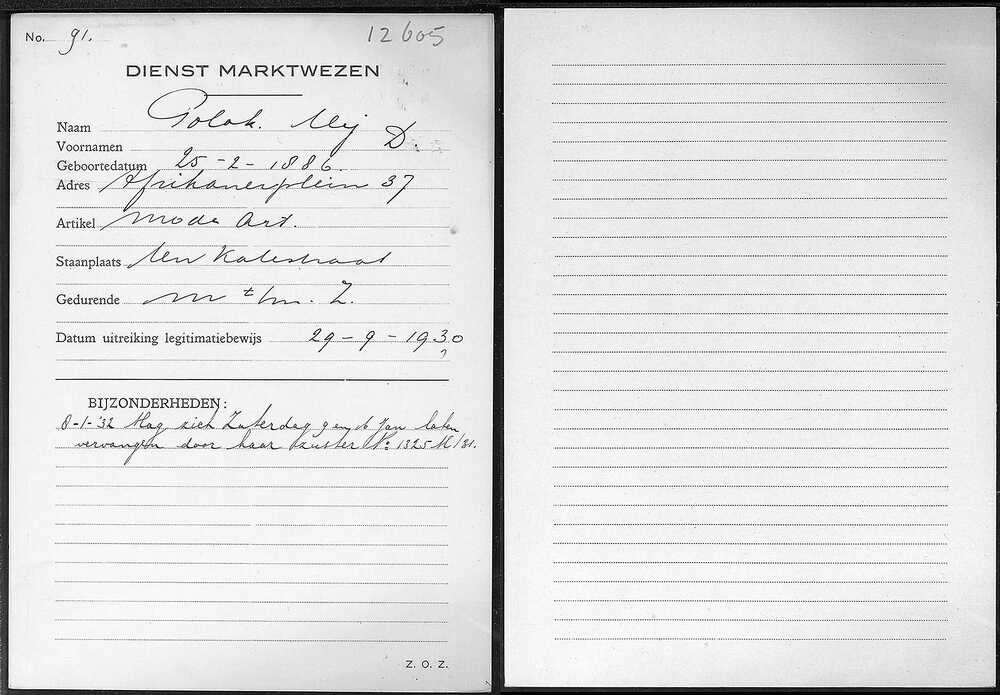 No. 91.
12605
DIENST MARKTWEZEN
Naam Polak. Mej D.
Voornamen
Geboortedatum 25-2-1886.
Adres Afrikanerplein 37
Artikel Mode Art.
Staanplaats Ten Katestraat
Gedurende m t/m. Z.
Datum uitreiking legitimatiebewijs 29-9-1930
BIJZONDERHEDEN:
8-1-'32 Mag zich Zaterdag 9 en 16 Jan laten
vervangen door haar zuster No 1325 M/31.
Z. O. Z.